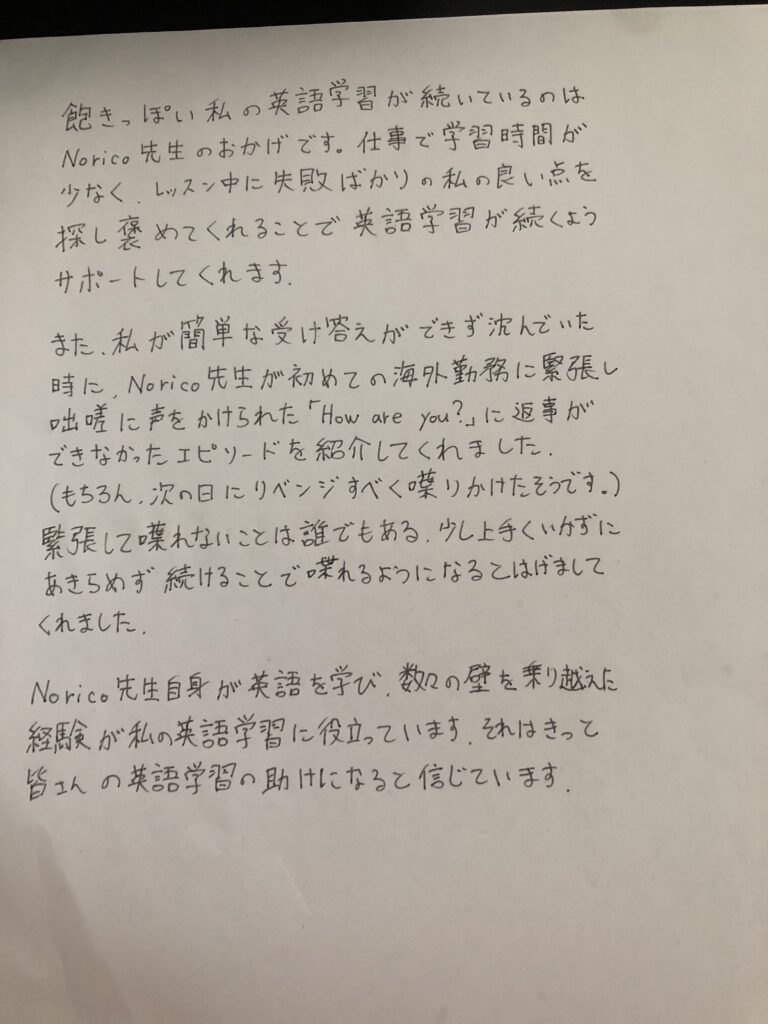 飽きっぽい私の英語学習が続いているのは
Norico先生のおかげです。仕事で学習時間が
少なく、レッスン中に失敗ばかりの私の良い点を
探し褒めてくれることで英語学習が続くよう
サポートしてくれます.
また、私が簡単な受け答えができず沈んでいた
時に、Norico先生が初めての海外勤務に緊張し
咄嗟に声をかけられた「How are you?」に返事が
できなかったエピソードを紹介してくれました.
(もちろん、次の日にリベンジすべく喋りかけたそうです。)
緊張して喋れないことは誰でもある、少し上手くいかずに
あきらめず続けることで喋れるようになるとはげまして
くれました.
Norico先生自身が英語を学び、数々の壁を乗り越えた
経験が私の英語学習に役立っています. それはきって
皆さんの英語学習の助けになると信じています.